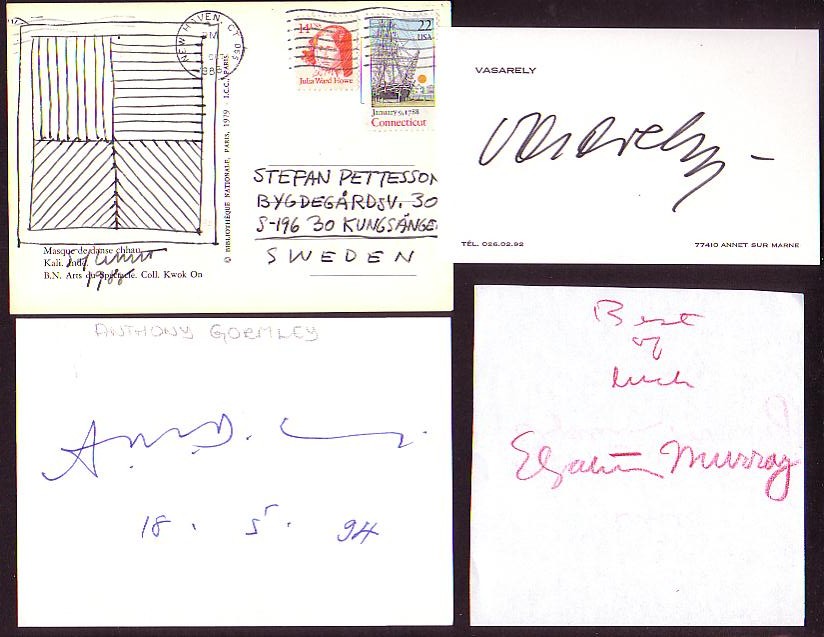 NEW HAVEN, CT 065
PM
14¢
Julia Ward Howe
22
USA
January 9, 1788
Connecticut
© BIBLIOTHÈQUE NATIONALE, PARIS, 1979 - I.C.C., PARIS
STEFAN PETTESSON
BYGDEGÅRDSV. 30
S-196 30 KUNGSÄNGE
SWEDEN
Masque de danse chhau
Kali. Inde.
B.N. Arts du Spectacle. Coll. Kwok On
1988
VASARELY
Vasarely
TÉL. 026.02.92
77410 ANNET SUR MARNE
ANTHONY GORMLEY
18. 5. 94
Best
of
luck
Elizabeth Murray